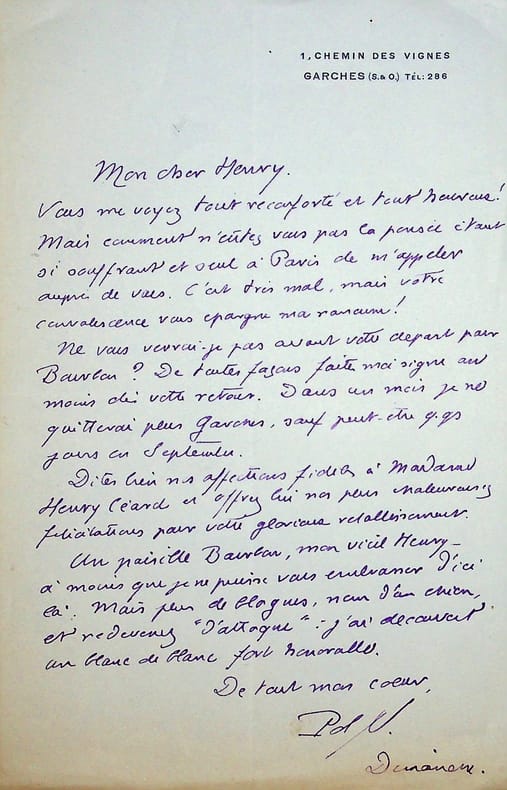 1, CHEMIN DES VIGNES
GARCHES (S.&O.) TÉL: 286
Mon cher Henry.
Vous me voyez tout réconforté et tout heureux!
Mais comment n'eûtez vous pas la pensée étant
si souffrant et seul à Paris de m'appeler
auprès de vous. C'est très mal, mais votre
convalescence vous épargne ma rancune!
Ne vous verrai-je pas avant votre départ pour
Bourbon? De toutes façons faites moi signe au
moins dès votre retour. Dans un mois je ne
quitterai plus Garches, sauf peut-être qqs
jours en Septembre.
Dites bien nos affections fidèles à Madame
Henry Céard et offrez lui nos plus chaleureuses
félicitations pour votre glorieux rétablissement.
Un paisible Bourbon, mon vieil Henry –
à moins que je ne puisse vous embrasser d'ici
là. Mais plus de blagues, nom d'un chien,
et redevenez "d'attaque": j'ai découvert
un blanc de blanc fort honorable.
De tout mon coeur,
Dimanche.